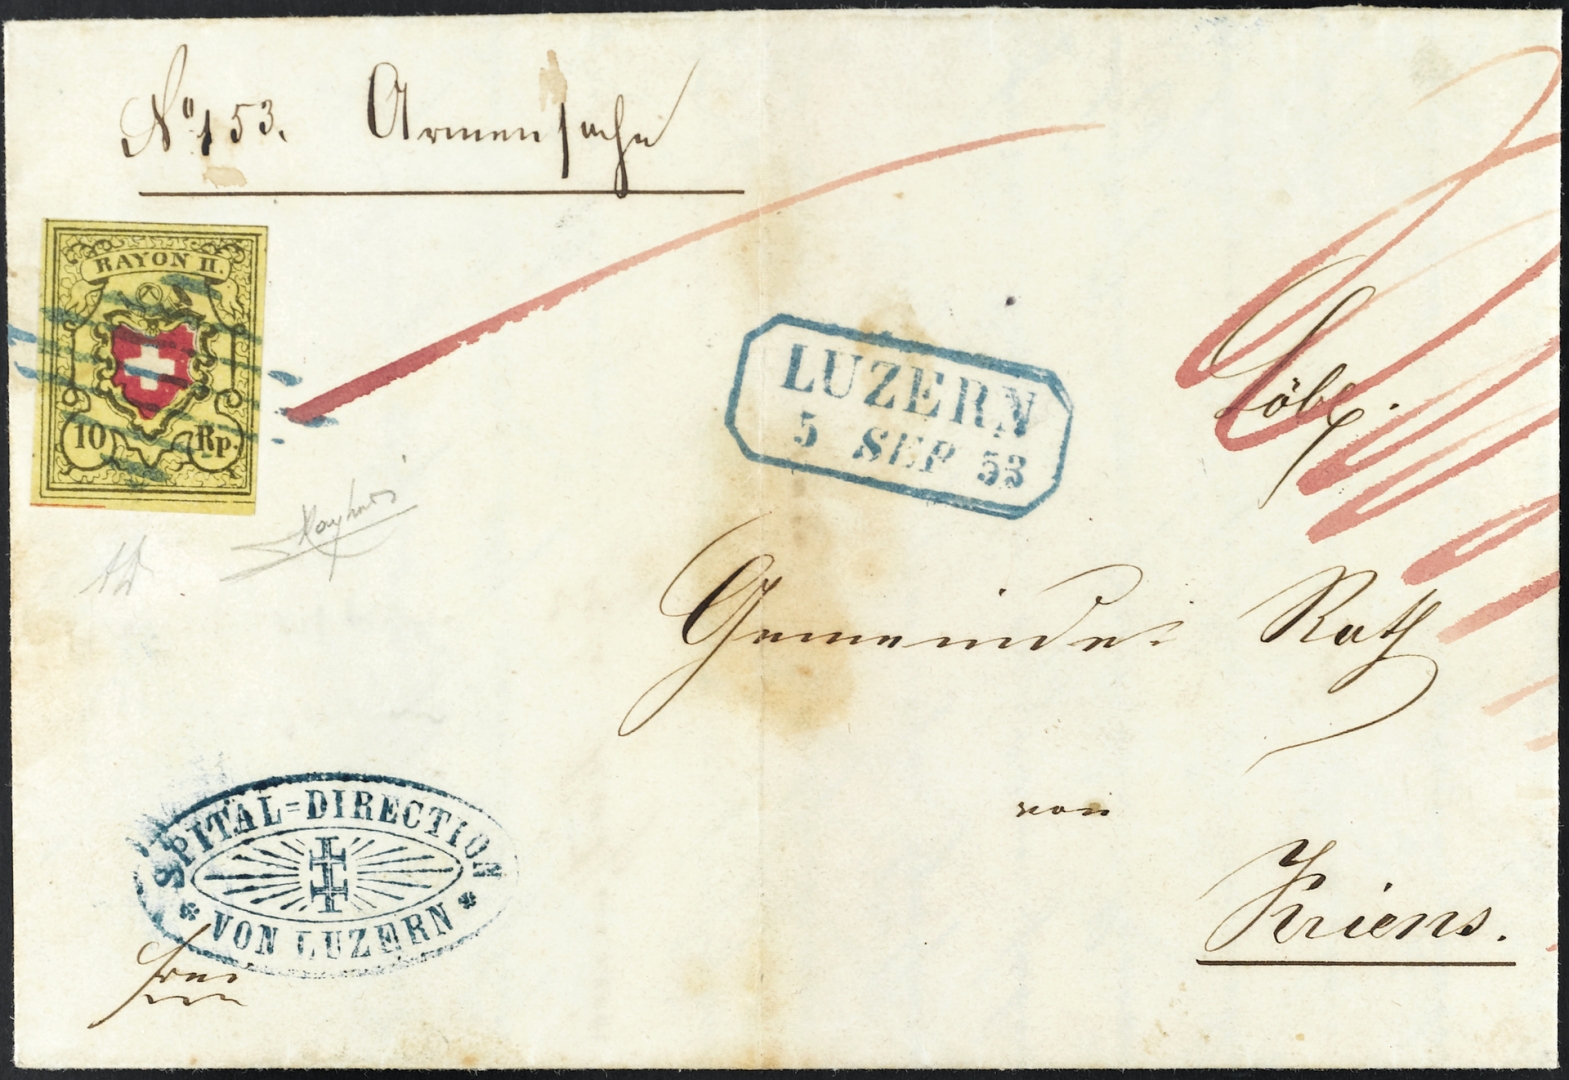 No 153. Armensache
RAYON II.
10 Rp.
LUZERN
5 SEP 53
Löbl.
Gemeinde Rath
von
Kriens.
SPITAL=DIRECTION
* VON LUZERN *